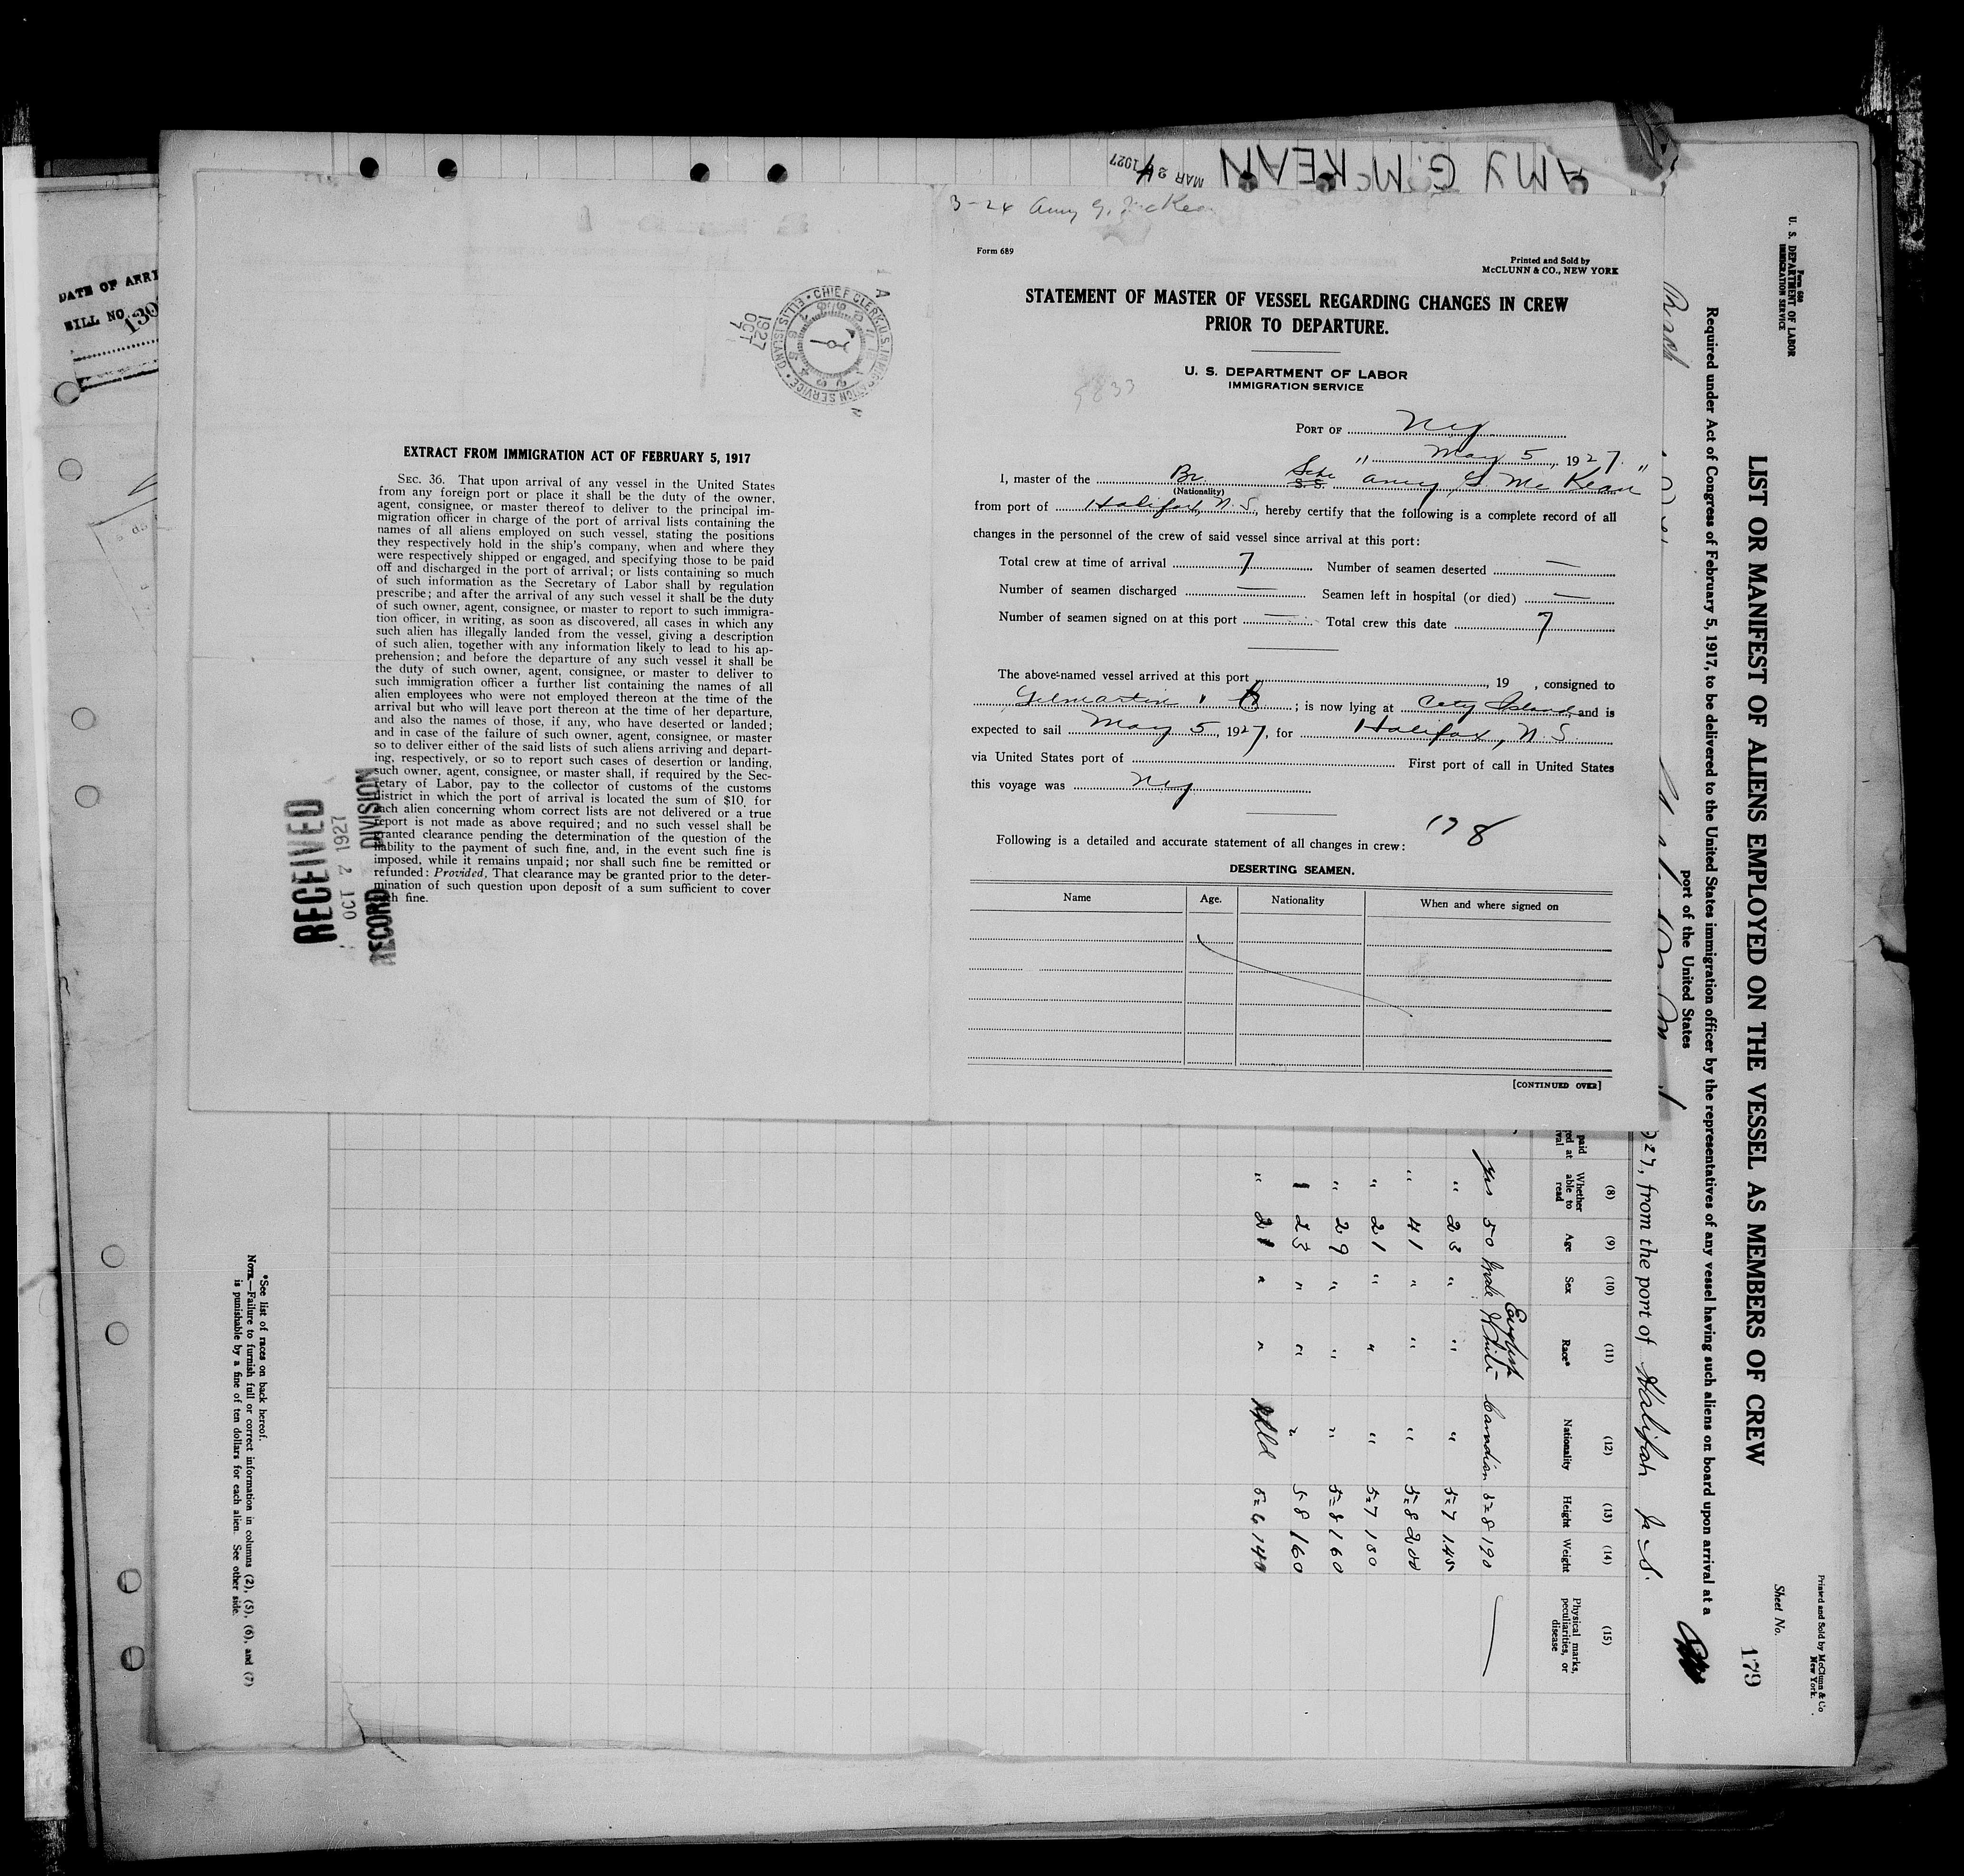 AMY G. McKEAN
MAR 24 1927
3-24 Amy G. McKean
Form 689
Printed and Sold by
McCLUNN & CO., NEW YORK
STATEMENT OF MASTER OF VESSEL REGARDING CHANGES IN CREW
PRIOR TO DEPARTURE.
U. S. DEPARTMENT OF LABOR
IMMIGRATION SERVICE
PORT OF NY
" May 5, 1927.
I, master of the Br. Sch. S.S. "Amy G. McKean"
(Nationality)
from port of Halifax, N.S., hereby certify that the following is a complete record of all
changes in the personnel of the crew of said vessel since arrival at this port:
Total crew at time of arrival 7 Number of seamen deserted —
Number of seamen discharged — Seamen left in hospital (or died) —
Number of seamen signed on at this port — Total crew this date 7
The above-named vessel arrived at this port , 19 , consigned to
Gilmartin ; is now lying at City Island and is
expected to sail May 5, 1927, for Halifax, N.S.
via United States port of First port of call in United States
this voyage was NY
178
Following is a detailed and accurate statement of all changes in crew:
DESERTING SEAMEN.
Name Age. Nationality When and where signed on
[CONTINUED OVER]
CHIEF CLERK, U.S. IMMIGRATION SERVICE • ELLIS ISLAND
1927
OCT
7
EXTRACT FROM IMMIGRATION ACT OF FEBRUARY 5, 1917
SEC. 36. That upon arrival of any vessel in the United States
from any foreign port or place it shall be the duty of the owner,
agent, consignee, or master thereof to deliver to the principal im-
migration officer in charge of the port of arrival lists containing the
names of all aliens employed on such vessel, stating the positions
they respectively hold in the ship's company, when and where they
were respectively shipped or engaged, and specifying those to be paid
off and discharged in the port of arrival; or lists containing so much
of such information as the Secretary of Labor shall by regulation
prescribe; and after the arrival of any such vessel it shall be the duty
of such owner, agent, consignee, or master to report to such immigra-
tion officer, in writing, as soon as discovered, all cases in which any
such alien has illegally landed from the vessel, giving a description
of such alien, together with any information likely to lead to his ap-
prehension; and before the departure of any such vessel it shall be
the duty of such owner, agent, consignee, or master to deliver to
such immigration officer a further list containing the names of all
alien employees who were not employed thereon at the time of the
arrival but who will leave port thereon at the time of her departure,
and also the names of those, if any, who have deserted or landed;
and in case of the failure of such owner, agent, consignee, or master
so to deliver either of the said lists of such aliens arriving and depart-
ing, respectively, or so to report such cases of desertion or landing,
such owner, agent, consignee, or master shall, if required by the Sec-
retary of Labor, pay to the collector of customs of the customs
district in which the port of arrival is located the sum of $10. for
each alien concerning whom correct lists are not delivered or a true
report is not made as above required; and no such vessel shall be
granted clearance pending the determination of the question of the
liability to the payment of such fine, and, in the event such fine is
imposed, while it remains unpaid; nor shall such fine be remitted or
refunded: Provided, That clearance may be granted prior to the deter-
mination of such question upon deposit of a sum sufficient to cover
such fine.
RECEIVED
OCT 7 1927
RECORD DIVISION
DATE OF ARRI
BILL NO. 130
Form 680
U. S. DEPARTMENT OF LABOR
IMMIGRATION SERVICE
Printed and Sold by McClunn & Co
New York.
Sheet No.
179
LIST OR MANIFEST OF ALIENS EMPLOYED ON THE VESSEL AS MEMBERS OF CREW
Required under Act of Congress of February 5, 1917, to be delivered to the United States immigration officer by the representatives of any vessel having such aliens on board upon arrival at a
port of the United States
927, from the port of Halifax N.S.
(8) (9) (10) (11) (12) (13) (14) (15)
Whether able to read Age Sex Race* Nationality Height Weight Physical marks, peculiarities, or disease
English
yes 50 Male White Canadian 5=8 190
" 23 " " " 5=7 145
" 41 " " " 5=8 200
" 21 " " " 5=7 150
" 29 " " " 5=8 160
" 23 " " " 5-8 160
" 21 " " Nfld 5=6 140
*See list of races on back hereof.
NOTE.—Failure to furnish full or correct information in columns (2), (5), (6), and (7)
is punishable by a fine of ten dollars for each alien. See other side.